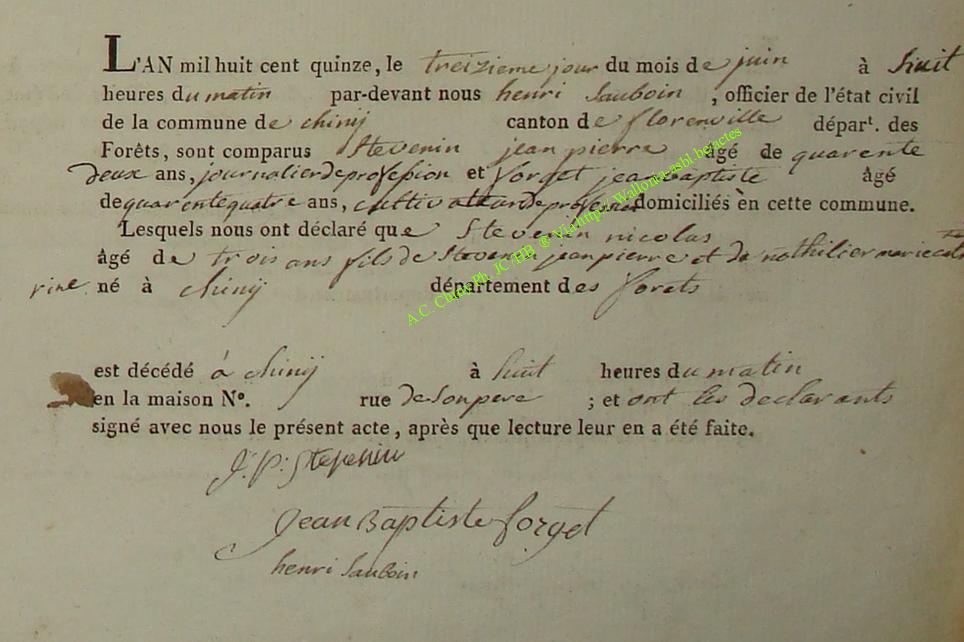 L'AN mil huit cent quinze, le treizieme jour du mois de juin à huit
heures du matin par-devant nous henri Sauboin , officier de l'état civil
de la commune de chinij canton de florenville départ. des
Forêts, sont comparus Stevenin jean pierre âgé de quarente
deux ans, journalier de profession et forget jean baptiste âgé
de quarente quatre ans, cultivateur de profession domiciliés en cette commune.
Lesquels nous ont déclaré que Stevenin nicolas
âgé de trois ans fils de Stevenin jean pierre et de marie cate
rine né à chinij département des forets
est décédé à chinij à huit heures du matin
en la maison N°. rue de Son pere ; et ont les declarants
signé avec nous le présent acte, après que lecture leur en a été faite.
J: P: Stevenin
Jean Baptiste forget
henri Sauboin